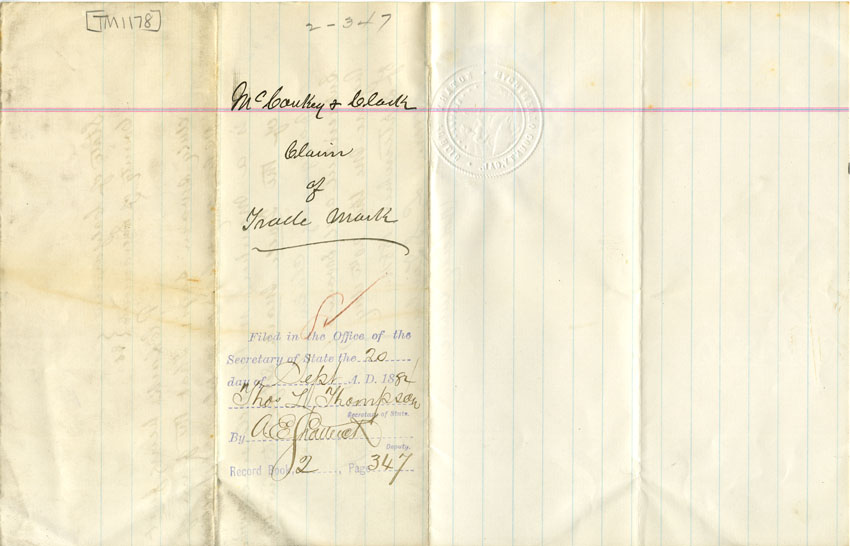 [TM1178]
2-347
McConkey & Clark
Claim
of
Trade Mark
Filed in the Office of the
Secretary of State the 20
day of Sept A. D. 188
Thos L Thompson
Secretary of State.
By A E Shattuck
Deputy.
Record Book 2, Page 347